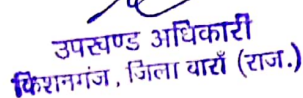 उपखण्ड अधिकारी
किशनगंज, जिला बाराँ (राज.)